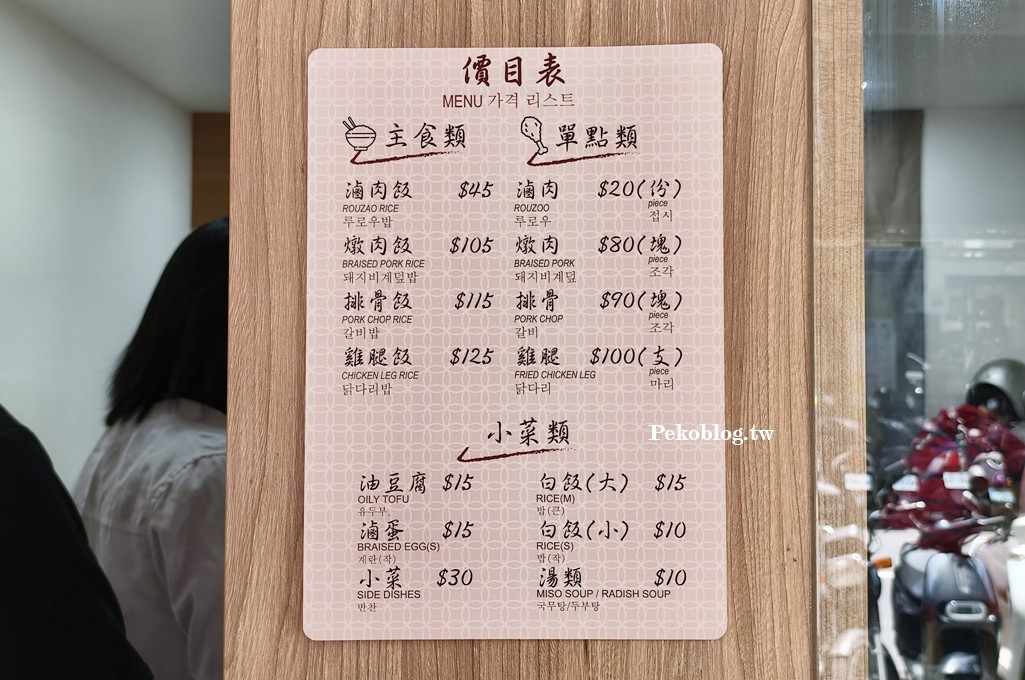 價目表
MENU 가격 리스트
主食類
滷肉飯 $45
ROUZAO RICE
루로우밥
燉肉飯 $105
BRAISED PORK RICE
돼지비계덮밥
排骨飯 $115
PORK CHOP RICE
갈비밥
雞腿飯 $125
CHICKEN LEG RICE
닭다리밥
單點類
滷肉 $20(份)
ROUZOO piece
루로우 접시
燉肉 $80(塊)
BRAISED PORK piece
돼지비계덮 조각
排骨 $90(塊)
PORK CHOP piece
갈비 조각
雞腿 $100(支)
FRIED CHICKEN LEG piece
닭다리 마리
小菜類
油豆腐 $15
OILY TOFU
유두부.
滷蛋 $15
BRAISED EGG(S)
계란(작)
小菜 $30
SIDE DISHES
반찬
白飯(大) $15
RICE(M)
밥(큰)
白飯(小) $10
RICE(S)
밥(작)
湯類 $10
MISO SOUP / RADISH SOUP
국무탕/두부탕
Pekoblog.tw